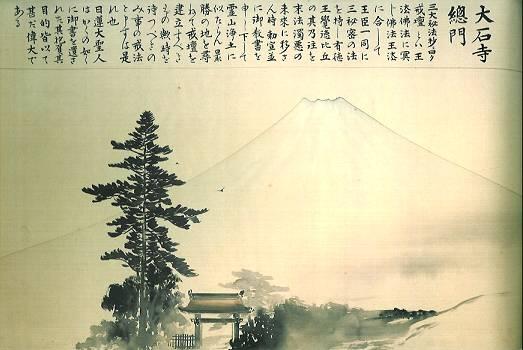 大石寺
總門
三大秘法抄曰ク
戒壇とハ王
法佛法に冥
じ佛法王法
に合して
王臣一同に
三秘密の法
を持ち有德
王覺德比丘
の其乃往を
末法濁惡の
未來に移さ
ん時勅宣並
に御教書を
申し下して
靈山浄土に
似たらん最
勝の地を尋
ねて戒壇を
建立すべき
ものか時を
待つべきの
み事の戒法
と申すは是
れ也
日蓮大聖人
はかくの如く
に御書を遺さ
れた其抱負其
目的皆以て
甚だ偉大で
ある